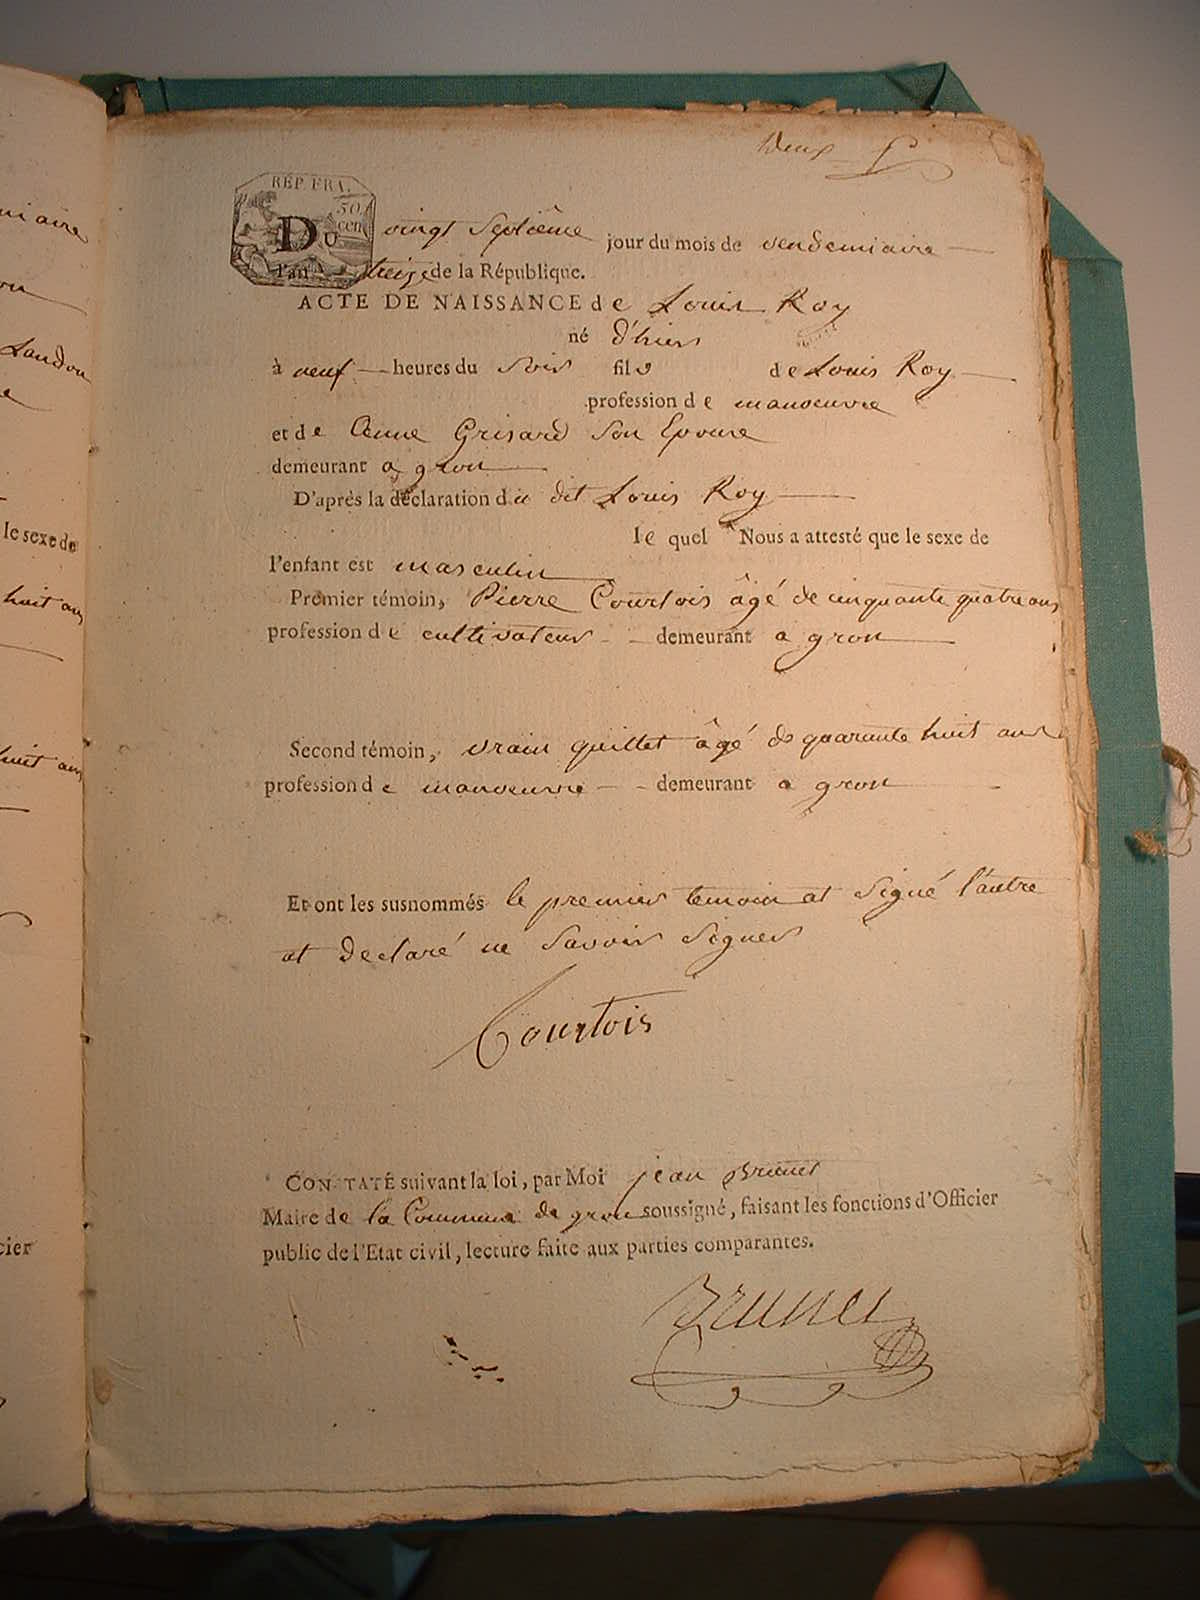 miaire
Landon
le sexe de
huit ans
huit ans
cier
Deux
REP. FRA.
50
cen
Du vingt Septième jour du mois de vendemiaire
l'an treize de la République.
ACTE DE NAISSANCE de Louis Roy
né d'hier
à neuf heures du Soir fils de Louis Roy
profession de manoeuvre
et de Anne Grisard Son Epouse
demeurant a gron
D'après la déclaration du dit Louis Roy
le quel Nous a attesté que le sexe de
l'enfant est masculin
Premier témoin, Pierre Courtois âgé de cinquante quatre ans
profession de cultivateur demeurant a gron
Second témoin, vrain quillet âgé de quarante huit ans
profession de manoeuvre demeurant a gron
Et ont les susnommés le premier temoin at Signé l'autre
at declaré ne Savoir Signer
Courtois
CONSTATÉ suivant la loi, par Moi jean Brunet
Maire de la Commune de gron soussigné, faisant les fonctions d'Officier
public de l'Etat civil, lecture faite aux parties comparantes.
Brunet